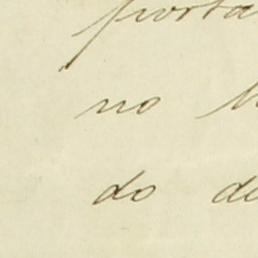 porta
no
do de